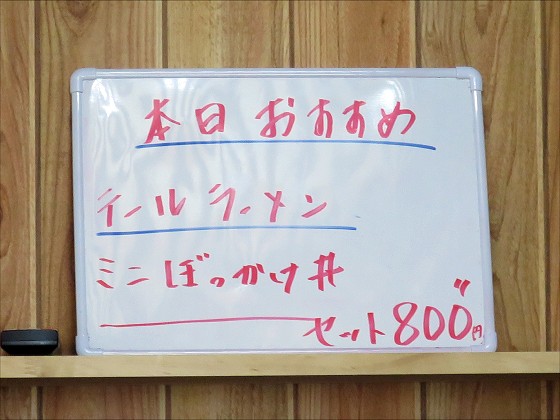 本日おすすめ
テールラーメン
ミニぼっかけ丼
セット800円